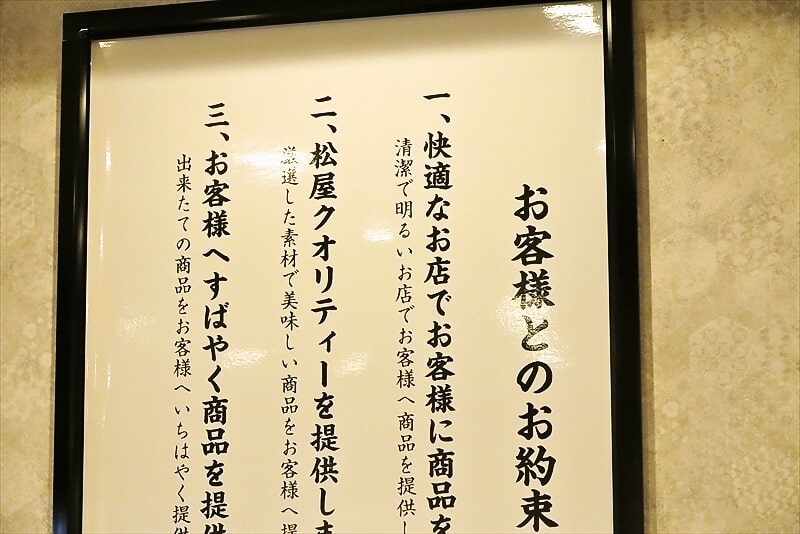 お客様とのお約束
一、快適なお店でお客様に商品を
清潔で明るいお店でお客様へ商品を提供し
二、松屋クオリティーを提供しま
厳選した素材で美味しい商品をお客様へ提
三、お客様へすばやく商品を提供
出来たての商品をお客様へいちはやく提供